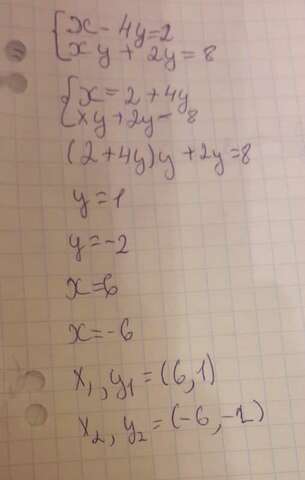 {x - 4y = 2
{xy + 2y = 8
{x = 2 + 4y
{xy + 2y - 8
(2 + 4y)y + 2y = 8
y = 1
y = -2
x = 6
x = -6
x₁, y₁ = (6, 1)
x₂, y₂ = (-6, -2)